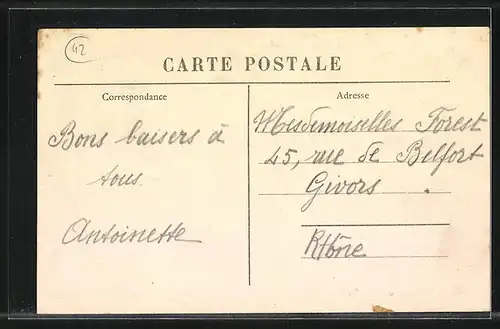 42
CARTE POSTALE
Correspondance
Bons baisers à
tous.
Antoinette
Adresse
Mesdemoiselles Forest
45, rue de Belfort
Givors.
Rhône